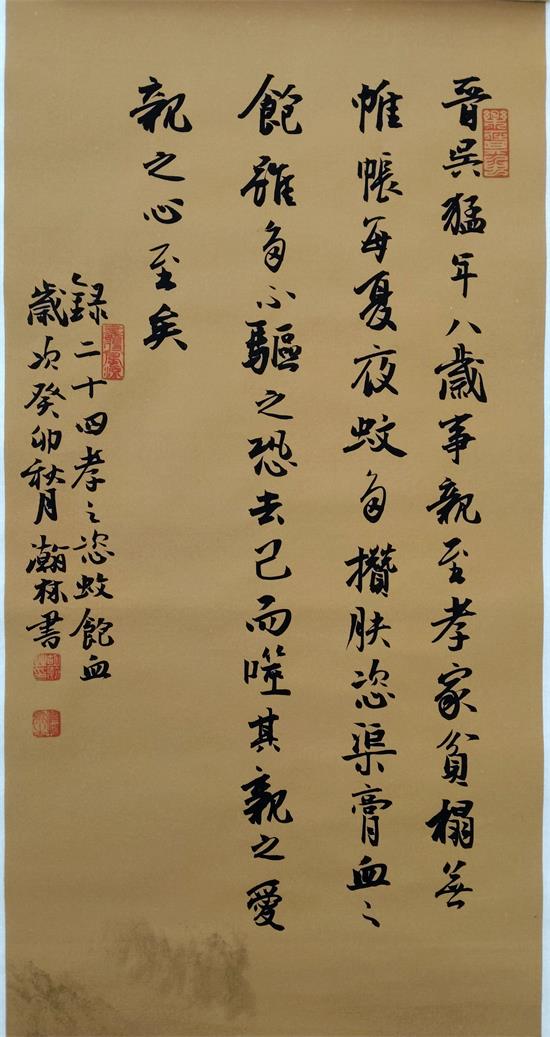 晋吳猛年八歲事親至孝家貧榻無
帷帳每夏夜蚊多攢肤恣渠膏血之
飽雖多不驅之恐去己而噬其親之愛
親之心至矣
錄二十四孝之恣蚊飽血
歲次癸卯秋月瀚林書